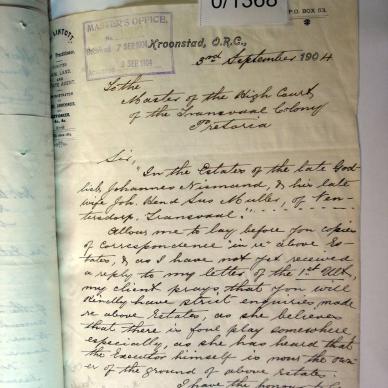 0/1368
P.O. BOX 53.
MASTER'S OFFICE,
No.
7 SEP 1904
SEP 1904
Kroonstad, O.R.C.,
3rd September 1904
To the
Master of the High Court
of the Transvaal Colony
Pretoria
Sir,
"In the Estates of the late God-
lieb Johannes Niemand, & his late
wife Joh. Bend Sus Muller, of Ven-
tersdorp, Transvaal"
Allow me to lay before you copies
of Correspondence in re above Es-
tates, & as I have not yet received
a reply to my letter of the 1st Ult,
my client prays that you will
Kindly have strict enquiries made
re above Estates, as she believes
that there is foul play somewhere,
especially, as she has heard that
the Executor himself is now the own-
er of the ground of above estate.
I have the honour